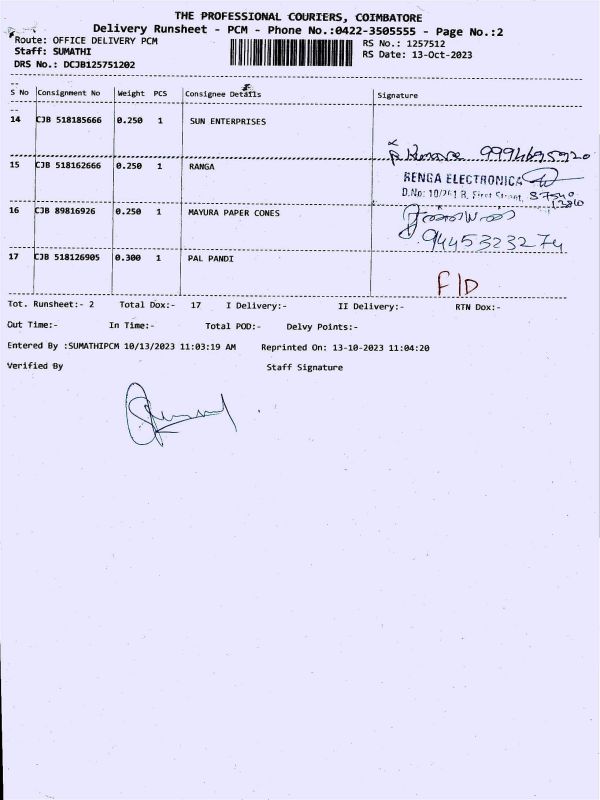 THE PROFESSIONAL COURIERS, COIMBATORE
Delivery Runsheet - PCM - Phone No.:0422-3505555 - Page No.:2
Route: OFFICE DELIVERY PCM RS No.: 1257512
Staff: SUMATHI RS Date: 13-Oct-2023
DRS No.: DCJB125751202
S No Consignment No Weight PCS Consignee Details Signature
14 CJB 518185666 0.250 1 SUN ENTERPRISES
15 CJB 518162666 0.250 1 RANGA
RENGA ELECTRONICA
D.No: 10/261 B, First Street,
16 CJB 89816926 0.250 1 MAYURA PAPER CONES
9445323274
17 CJB 518126905 0.300 1 PAL PANDI
F/D
Tot. Runsheet:- 2 Total Dox:- 17 I Delivery:- II Delivery:- RTN Dox:-
Out Time:- In Time:- Total POD:- Delvy Points:-
Entered By :SUMATHIPCM 10/13/2023 11:03:19 AM Reprinted On: 13-10-2023 11:04:20
Verified By Staff Signature